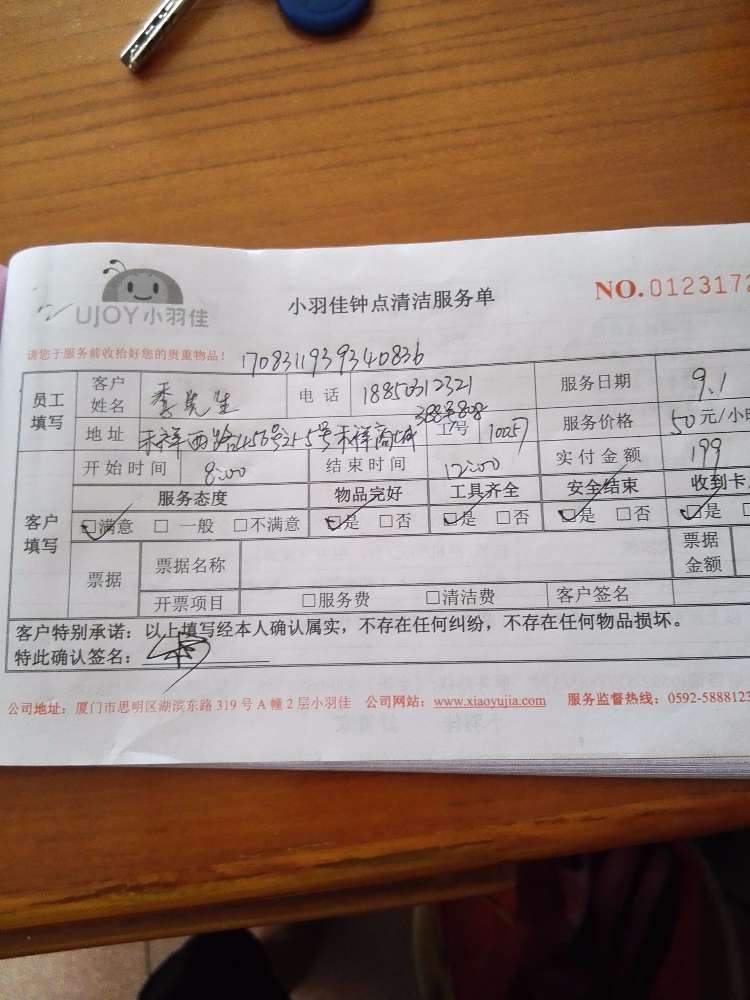 UJOY小羽佳
小羽佳钟点清洁服务单
NO.0123172
请您于服务前收拾好您的贵重物品！
1708311939340836
员工填写 客户姓名 季先生 电话 18850312321 服务日期 9.1
地址 禾祥西路 号 禾祥商城 工号 10057 服务价格 50元/小时
开始时间 8:00 结束时间 12:00 实付金额 199
客户填写 服务态度 物品完好 工具齐全 安全结束 收到卡
☑满意 □一般 □不满意 ☑是 □否 ☑是 □否 ☑是 □否 ☑是
票据 票据名称 票据金额
开票项目 □服务费 □清洁费 客户签名
客户特别承诺：以上填写经本人确认属实，不存在任何纠纷，不存在任何物品损坏。
特此确认签名：
公司地址：厦门市思明区湖滨东路 319 号 A 幢 2 层小羽佳 公司网站：www.xiaoyujia.com 服务监督热线：0592-5888123